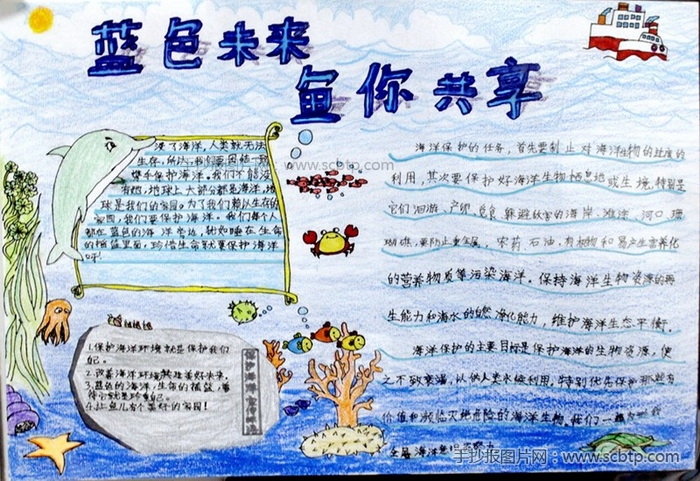 蓝色未来
鱼你共享
www.scbtp.com
没了海洋,人类就无法
生存,所以我们要团结一致,
携手保护海洋。我们不能没
有她,地球上大部分都是海洋,地
球是我们的家园。为了我们赖以生存的
家园,我们要保护海洋。我们每个人
都在蓝色的海洋旁边,就如睡在生命
的摇篮里面,珍惜生命就要保护海洋
呀!
海洋保护的任务,首先要制止对海洋生物的过度的
利用,其次要保护好海洋生物栖息地或生境,特别是
它们洄游、产卵、觅食、躲避敌害的海岸、滩涂、河口、珊
瑚礁,要防止重金属、农药、石油、有机物和易产生富养化
的营养物质等污染海洋。保持海洋生物资源的再
生能力和海水的自然净化能力,维护海洋生态平衡。
海洋保护的主要目是保护海洋的生物资源,使
之不致衰竭,以供人类永续利用,特别优先保护那些有
价值和濒临灭绝危险的海洋生物。我们一
1.保护海洋环境就是保护我们
自己。
2.改善海洋环境,创造美好未来。
3.蓝色的海洋,生命的摇篮,善
待它就是珍重自己。
4.让鱼儿有个美好的家园!
保护海洋
手抄报图片网:www.scbtp.com